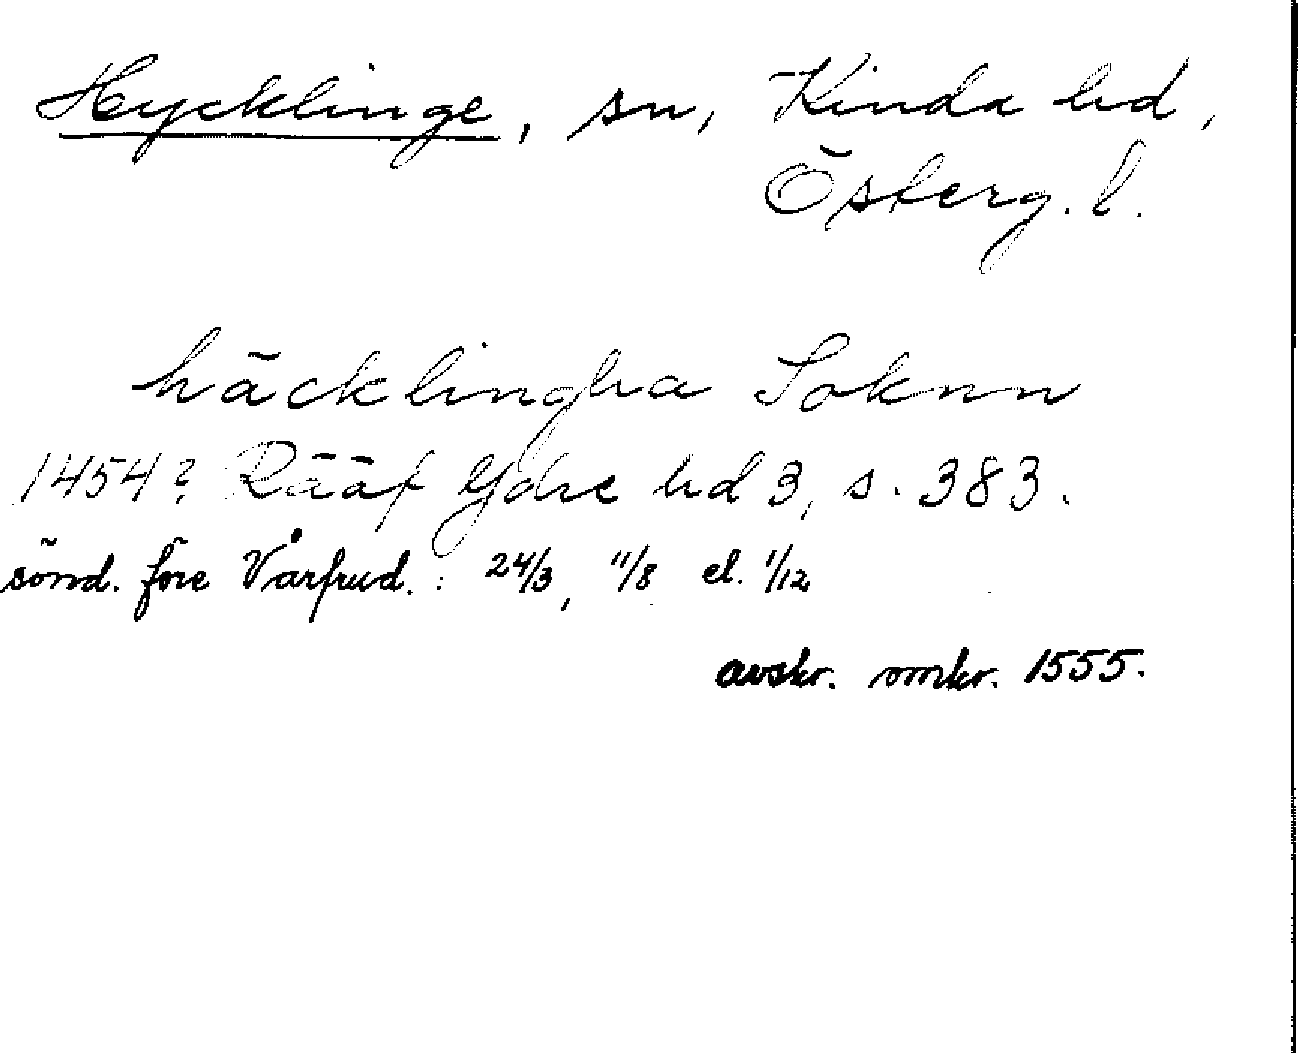 Hycklinge, sn, Kinda hd,
Österg. l.
häcklingha Soknn
1454? Rääf Ydre hd 3, s. 383.
sönd. före Vårfrud. : 24/3, 11/8 el. 1/12
avskr. omkr. 1555.